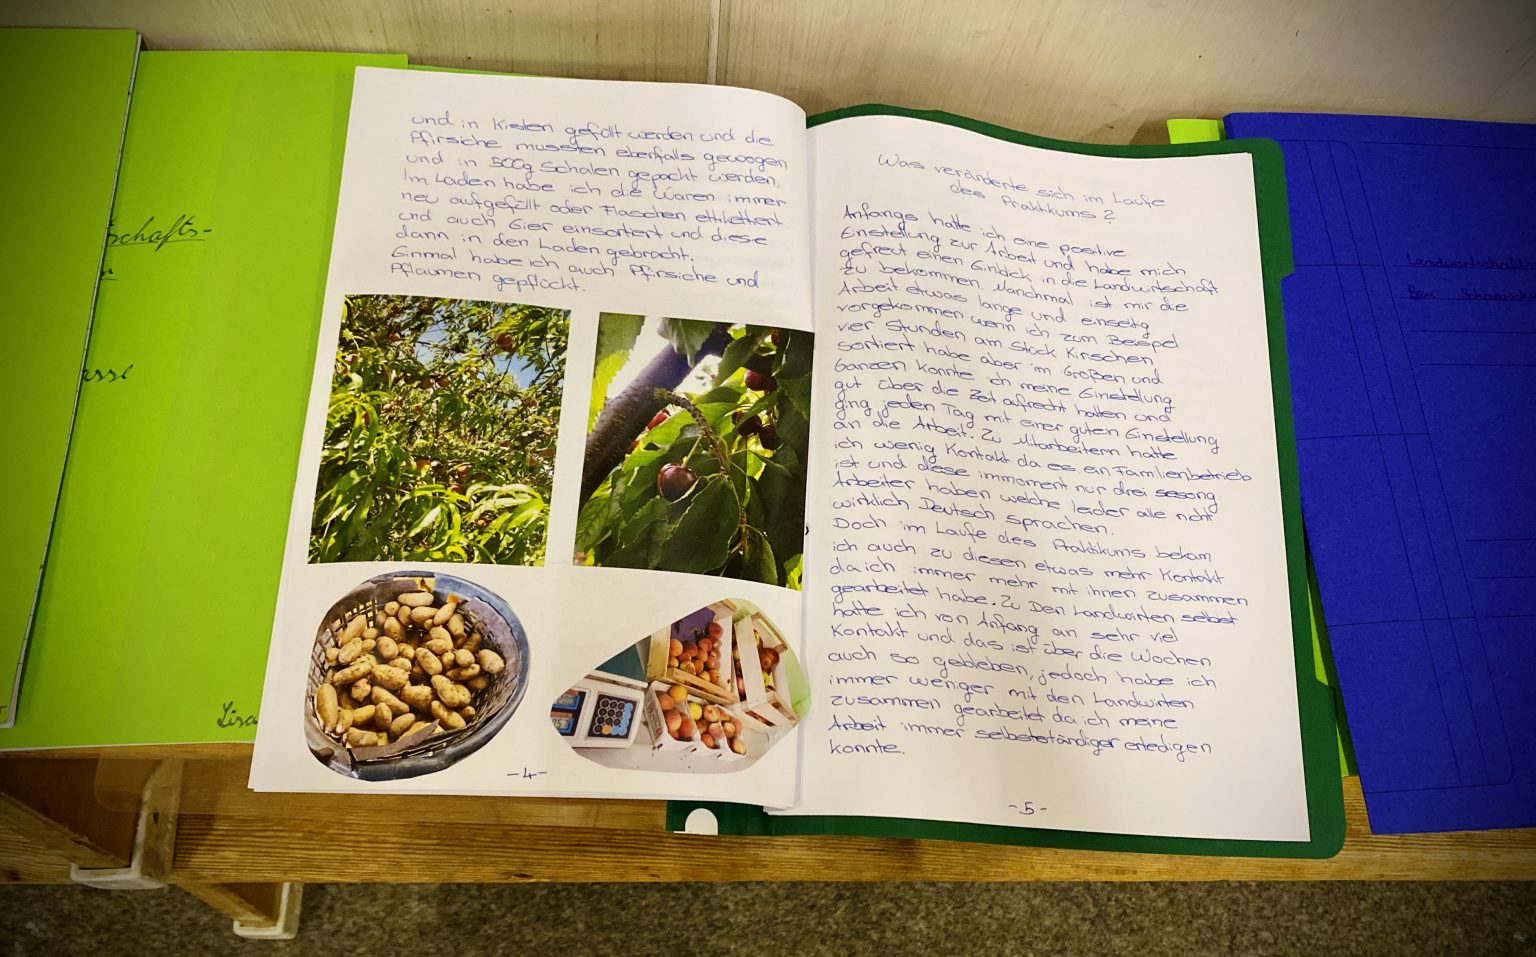 schafts-
asse
Lisa
und in Kisten gefüllt werden und die
Pfirsiche mussten ebenfalls gewogen
und in 500g Schalen gepackt werden.
Im Laden habe ich die Waren immer
neu aufgefüllt oder Flaschen ettikettiert
und auch Eier einsortiert und diese
dann in den Laden gebracht.
Einmal habe ich auch Pfirsiche und
Pflaumen gepflückt.
-4-
Was veränderte sich im Laufe
des Praktikums?
Anfangs hatte ich eine positive
Einstellung zur Arbeit und habe mich
gefreut einen Einblick in die Landwirtschaft
zu bekommen. Manchmal ist mir die
Arbeit etwas lange und einseitig
vorgekommen wenn ich zum Beispiel
vier Stunden am Stück Kirschen
sortiert habe aber im Großen und
Ganzen konnte ich meine Einstellung
gut über die Zeit aufrecht halten und
ging jeden Tag mit einer guten Einstellung
an die Arbeit. Zu Mitarbeitern hatte
ich wenig Kontakt da es ein Familienbetrieb
ist und diese immoment nur drei sesong
Arbeiter haben welche leider alle nicht
wirklich Deutsch sprachen.
Doch im Laufe des Praktikums bekam
ich auch zu diesen etwas mehr Kontakt
da ich immer mehr mit ihnen zusammen
gearbeitet habe. Zu Den Landwirten selbst
hatte ich von Anfang an sehr viel
Kontakt und das ist über die Wochen
auch so geblieben, jedoch habe ich
immer weniger mit den Landwirten
zusammen gearbeitet da ich meine
Arbeit immer selbstständiger erledigen
konnte.
-5-